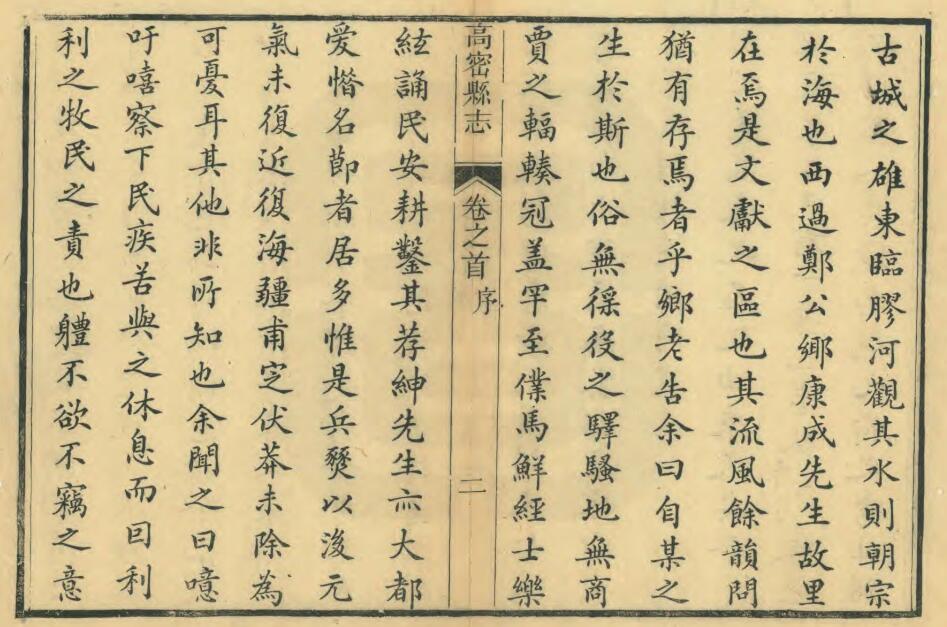 古城之雄東臨膠河觀其水則朝宗
於海也西過鄭公鄉康成先生故里
在焉是文獻之區也其流風餘韻問
猶有存焉者乎鄉老告余曰自某之
生於斯也俗無徭役之驛騷地無商
賈之輻輳冠盖罕至僕馬鮮經士樂
高密縣志
卷之首 序
二
絃誦民安耕鑿其荐紳先生亦大都
愛惜名節者居多惟是兵燹以後元
氣未復近復海疆甫定伏莽未除為
可憂耳其他非所知也余聞之曰噫
吁嘻察下民疾苦與之休息而因利
利之牧民之責也軆不欲不竊之意